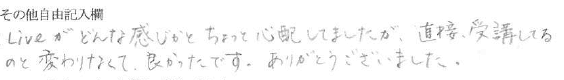 その他自由記入欄
Liveがどんな感じかとちょっと心配してましたが、直接、受講してる
のと変わりなくて、良かったです。ありがとうございました。